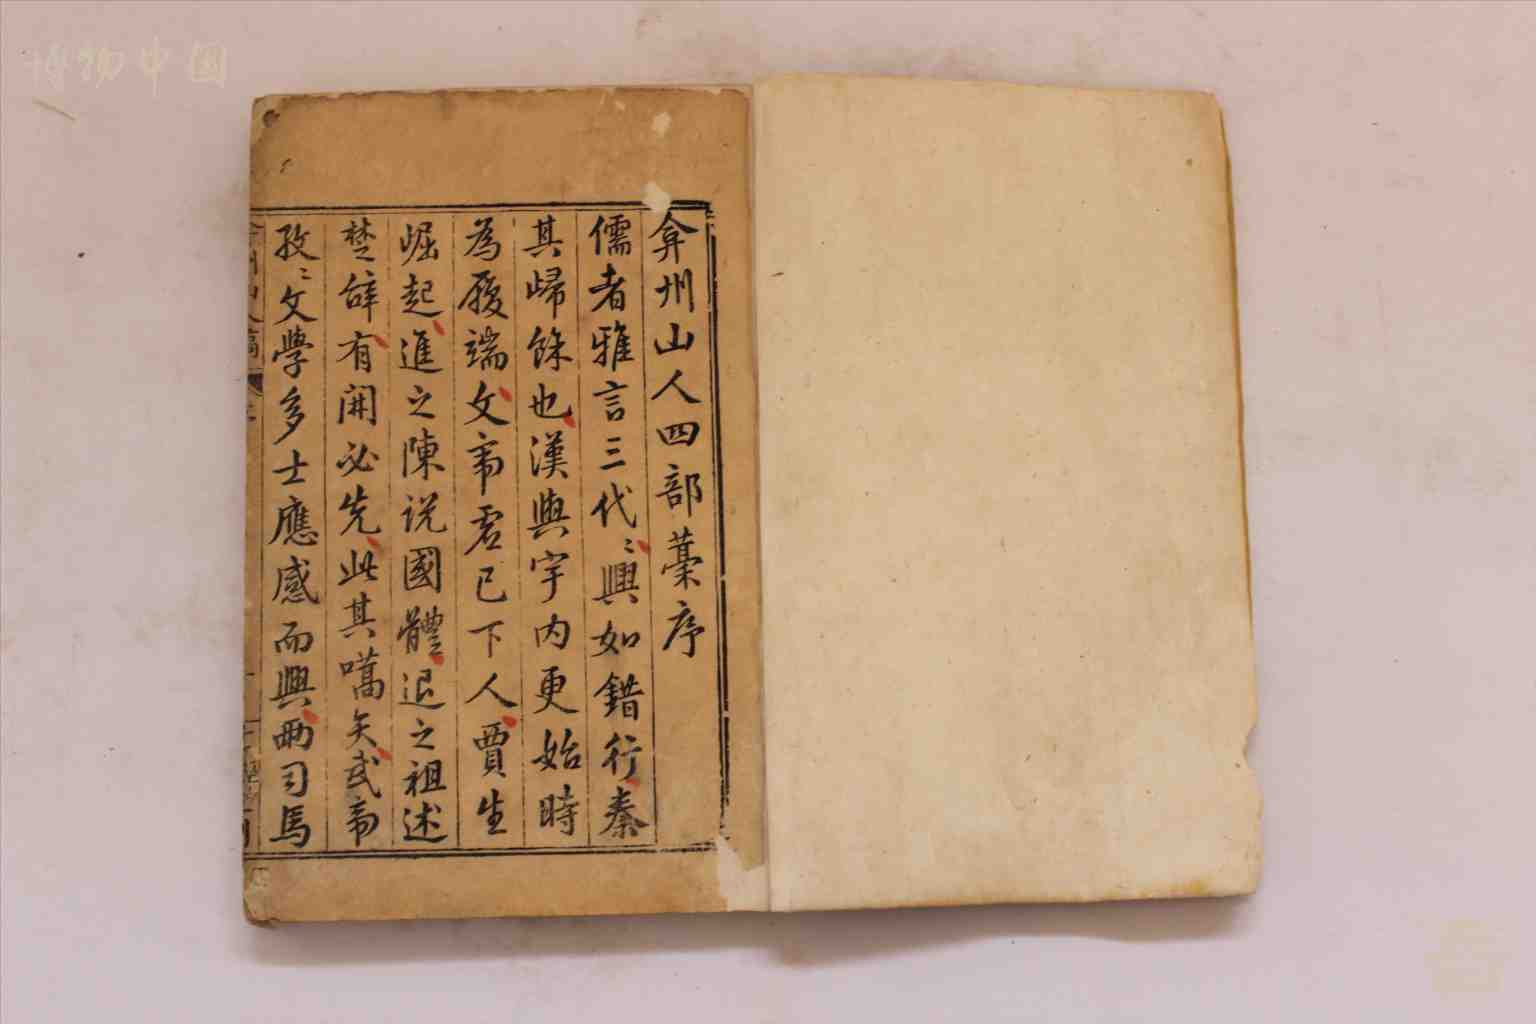 弇州山人四部藳序
儒者雅言三代〻興如錯行秦
其歸餘也漢興宇内更始時
為履端文帝君已下人賈生
崛起進之陳說國體退之祖述
楚辝有開必先此其嚆矢武帝
孜〻文學多士應感而興兩司馬
博物中国